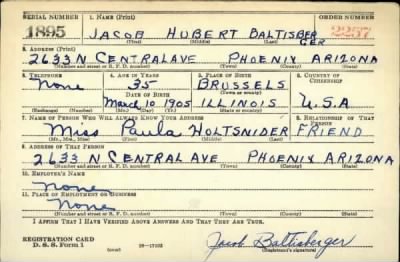 SERIAL NUMBER 1. NAME (Print) ORDER NUMBER
1895 JACOB HUBERT BALTISBER
GER
(First) (Middle) (Last)
2. ADDRESS (Print)
2633 N CENTRAL AVE PHOENIX ARIZONA
(Number and street or R. F. D. number) (Town) (County) (State)
3. TELEPHONE 4. AGE IN YEARS 5. PLACE OF BIRTH 6. COUNTRY OF CITIZENSHIP
None 35 BRUSSELS
DATE OF BIRTH (Town or county)
March 10 1905 ILLINOIS U.S.A
(Exchange) (Number) (Mo.) (Day) (Yr.) (State or country)
7. NAME OF PERSON WHO WILL ALWAYS KNOW YOUR ADDRESS 8. RELATIONSHIP OF THAT PERSON
Miss Paula HOLTSNIDER FRIEND
(Mr., Mrs., Miss) (First) (Middle) (Last)
9. ADDRESS OF THAT PERSON
2633 N CENTRAL AVE PHOENIX ARIZONA
(Number and street or R. F. D. number) (Town) (County) (State)
10. EMPLOYER'S NAME
None
11. PLACE OF EMPLOYMENT OR BUSINESS
None
(Number and street or R. F. D. number) (Town) (County) (State)
I AFFIRM THAT I HAVE VERIFIED ABOVE ANSWERS AND THAT THEY ARE TRUE.
REGISTRATION CARD
D. S. S. Form 1 (over) 16-17105 Jacob Baltisberger
(Registrant's signature)